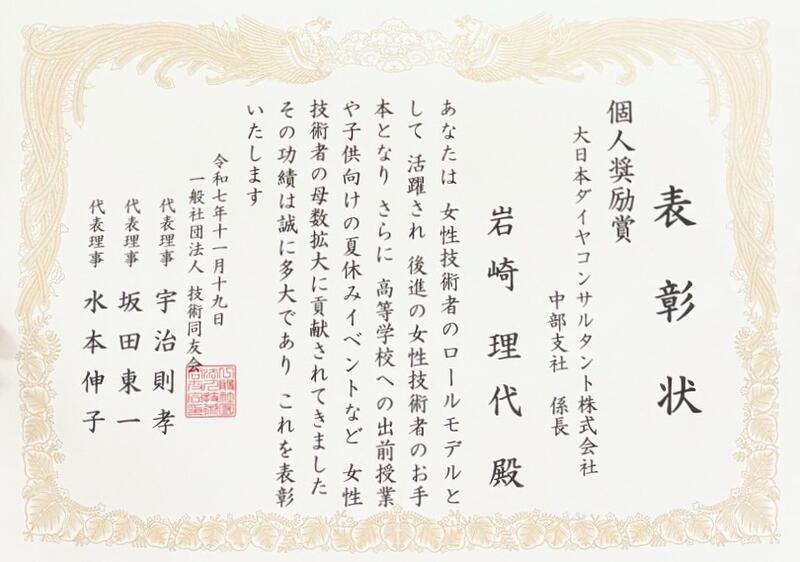 表彰状
個人奨励賞
大日本ダイヤコンサルタント株式会社
中部支社 係長
岩崎理代殿
あなたは 女性技術者のロールモデルと
して 活躍され 後進の女性技術者のお手
本となり さらに 高等学校への出前授業
や子供向けの夏休みイベントなど 女性
技術者の母数拡大に貢献されてきました
その功績は誠に多大であり これを表彰
いたします
令和七年十一月十九日
一般社団法人 技術同友会
代表理事 宇治則孝
代表理事 坂田東一
代表理事 水本伸子